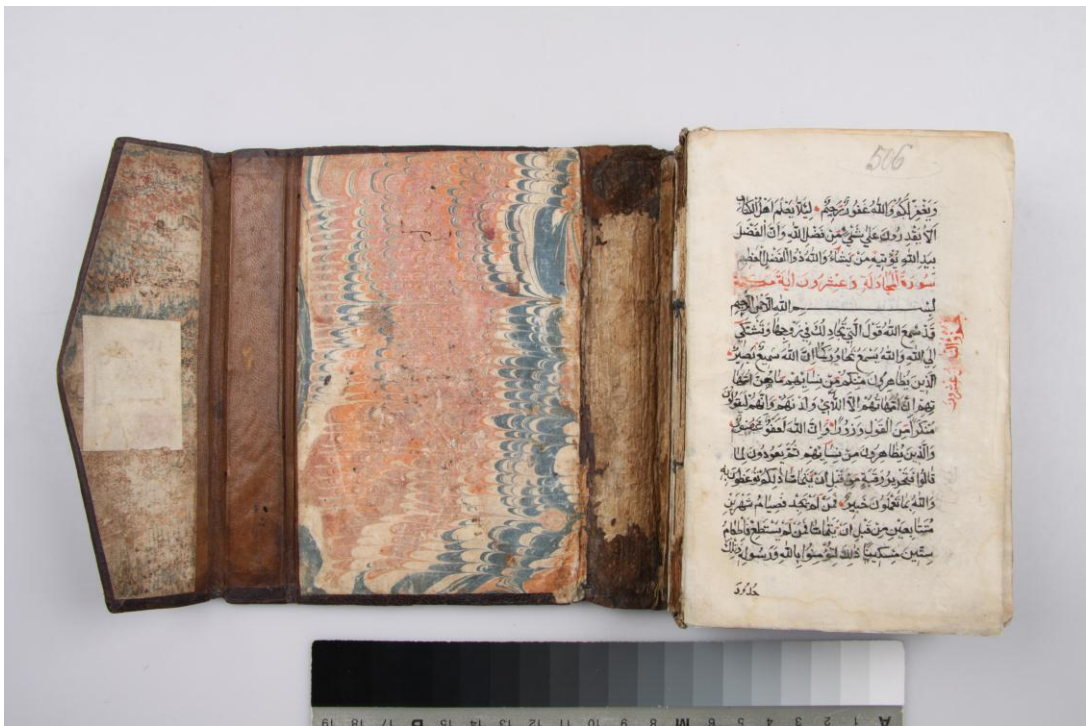 506
وَيَغْفِرْ لَكُمْ وَاللهُ غَفُورٌ رَحِيمٌ لِئَلَّا يَعْلَمَ اَهْلُ الْكِتَابِ
اَلَّا يَقْدِرُونَ عَلَى شَيْءٍ مِنْ فَضْلِ اللهِ وَاَنَّ الْفَضْلَ
بِيَدِ اللهِ يُؤْتِيهِ مَنْ يَشَاءُ وَاللهُ ذُو الْفَضْلِ الْعَظِيمِ
سورة المجادلة وعشرون اية
بسم الله الرحمن الرحيم
قَدْ سَمِعَ اللهُ قَوْلَ الَّتِي تُجَادِلُكَ فِي زَوْجِهَا وَتَشْتَكِي
اِلَى اللهِ وَاللهُ يَسْمَعُ تَحَاوُرَكُمَا اِنَّ اللهَ سَمِيعٌ بَصِيرٌ
الَّذِينَ يُظَاهِرُونَ مِنْكُمْ مِنْ نِسَائِهِمْ مَا هُنَّ اُمَّهَا
تِهِمْ اِنْ اُمَّهَاتُهُمْ اِلَّا اللَّائِي وَلَدْنَهُمْ وَاِنَّهُمْ لَيَقُولُونَ
مُنْكَرًا مِنَ الْقَوْلِ وَزُورًا وَاِنَّ اللهَ لَعَفُوٌّ غَفُورٌ
وَالَّذِينَ يُظَاهِرُونَ مِنْ نِسَائِهِمْ ثُمَّ يَعُودُونَ لِمَا
قَالُوا فَتَحْرِيرُ رَقَبَةٍ مِنْ قَبْلِ اَنْ يَتَمَاسَّا ذَلِكُمْ تُوعَظُونَ بِهِ
وَاللهُ بِمَا تَعْمَلُونَ خَبِيرٌ فَمَنْ لَمْ يَجِدْ فَصِيَامُ شَهْرَيْنِ
مُتَتَابِعَيْنِ مِنْ قَبْلِ اَنْ يَتَمَاسَّا فَمَنْ لَمْ يَسْتَطِعْ فَاِطْعَامُ
سِتِّينَ مِسْكِينًا ذَلِكَ لِتُؤْمِنُوا بِاللهِ وَرَسُولِهِ وَتِلْكَ
حُدُودُ
19 18 17 B 16 15 14 13 12 11 10 9 8 M 7 6 5 4 3 2 1 A